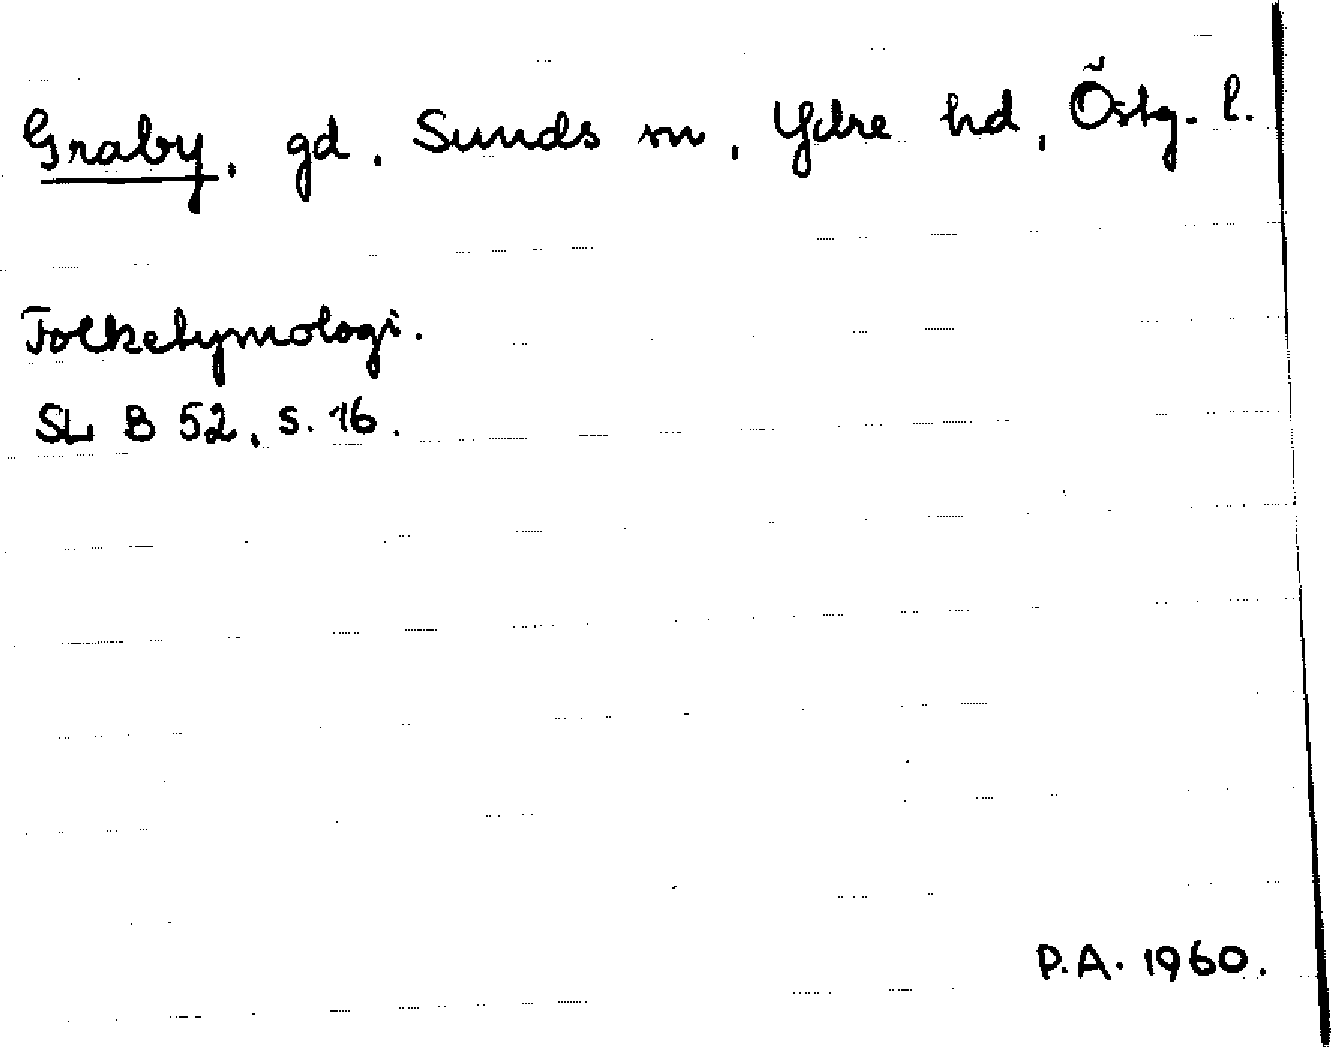 Graby, gd, Sunds sn, Ydre hd, Östg. l.
Folketymologi.
SL B 52, s. 16.
P.A. 1960.